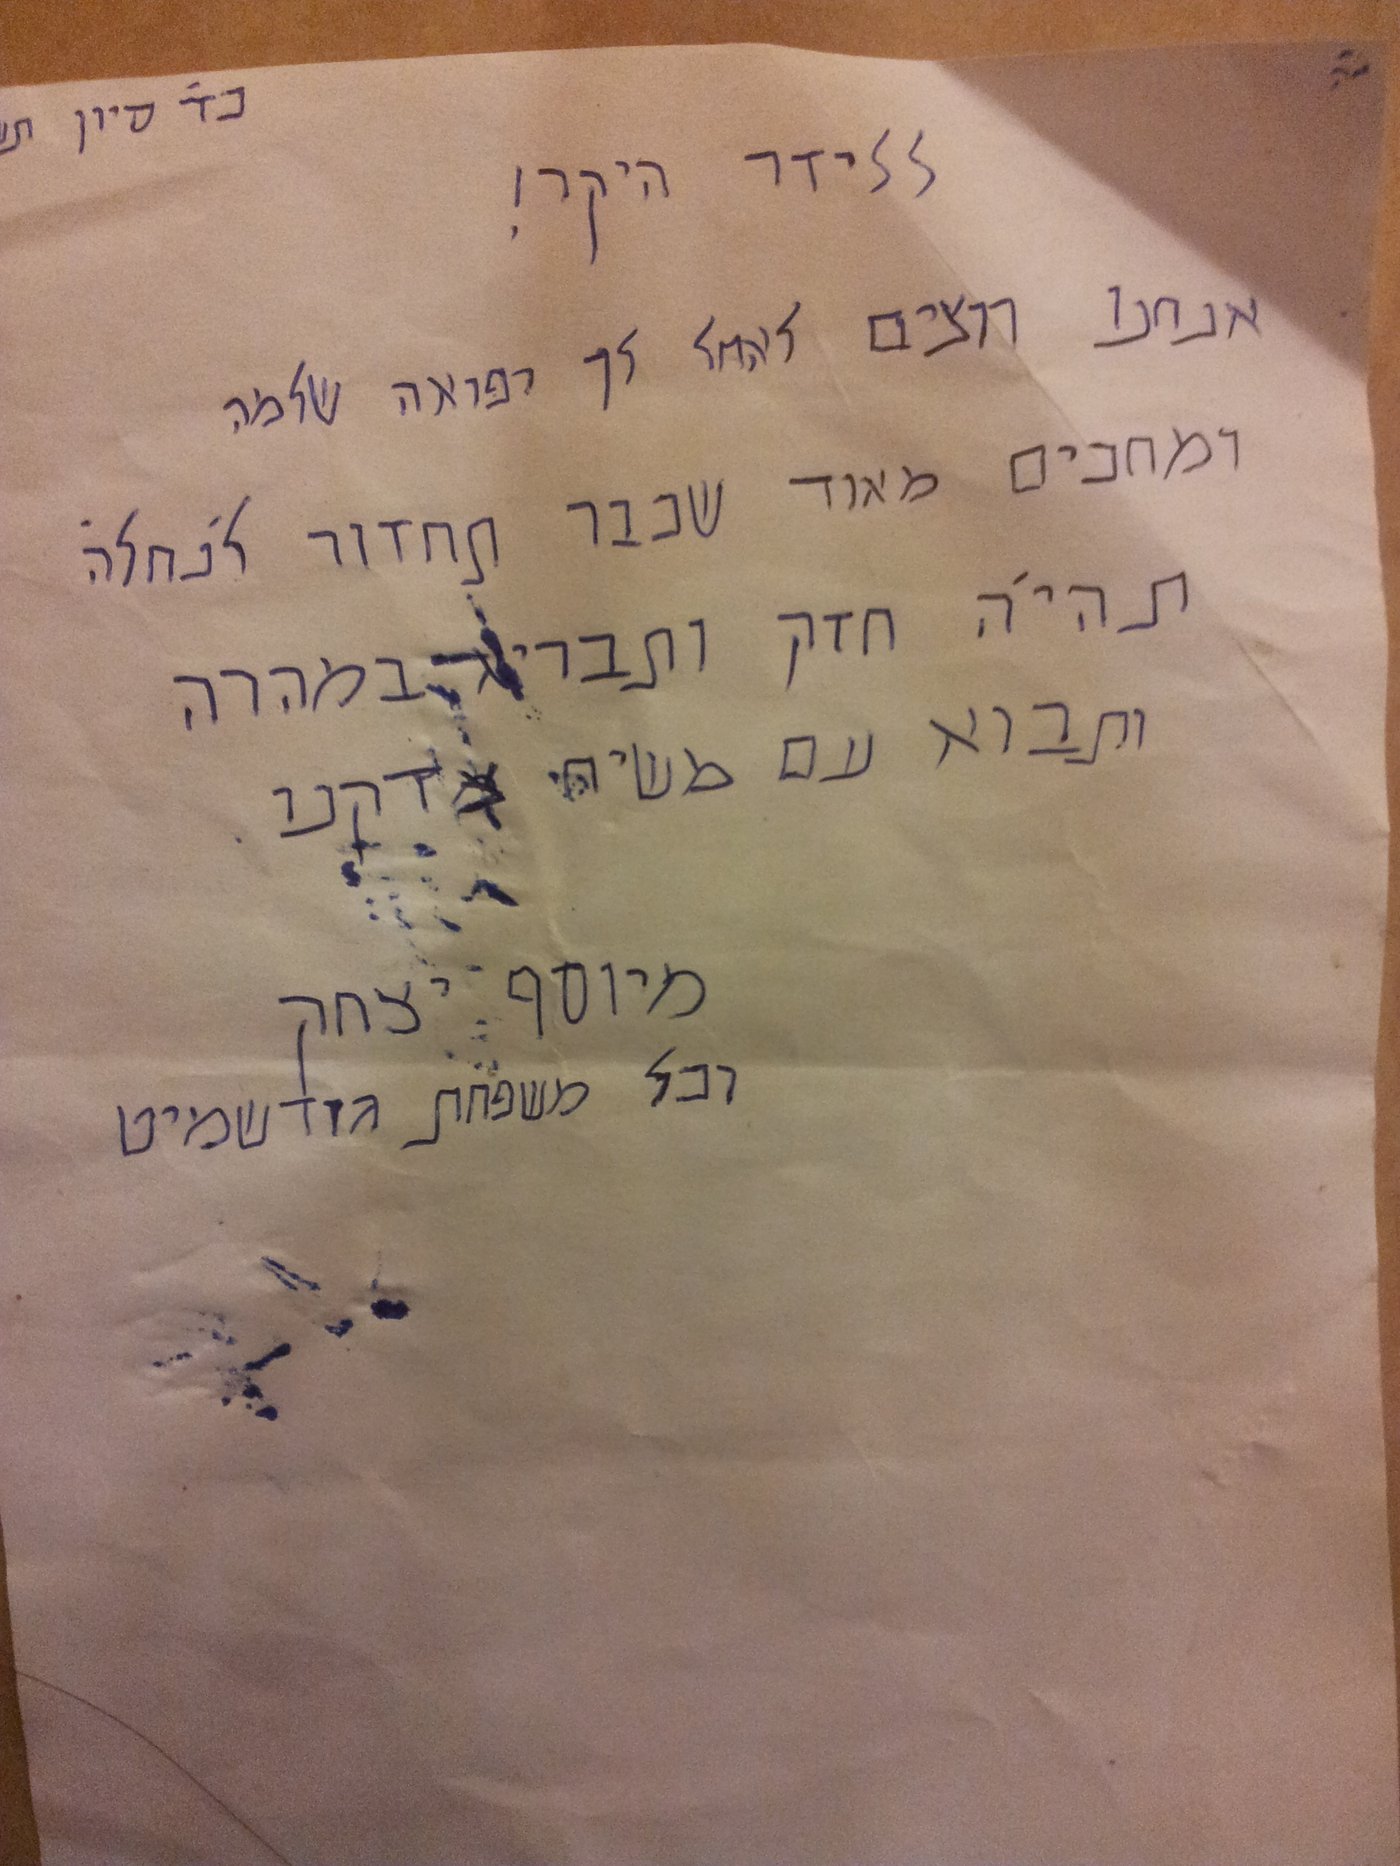 ב"ה
כד' סיון
ללידר היקר!
אנחנו רוצים לאחל לך רפואה שלמה
ומחכים מאוד שכבר תחזור לנחלה
תהי'ה חזק ותבריא במהרה
ותבוא עם משיח צדקנו
מיוסף יצחק
וכל משפחת גולדשמיט